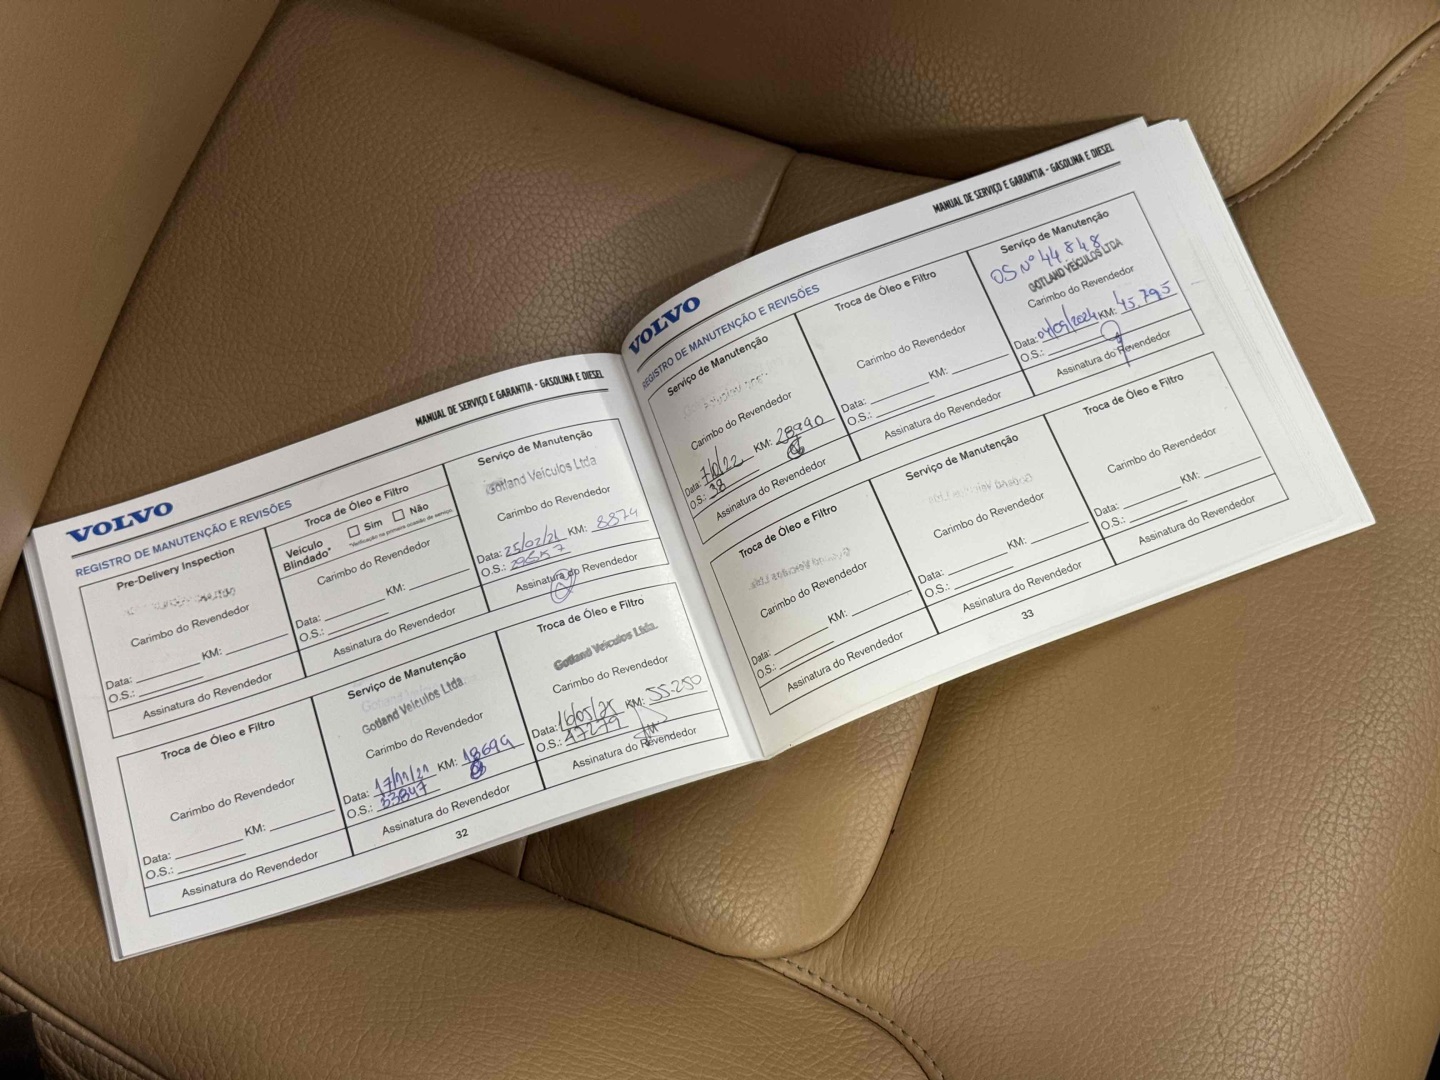 VOLVO
MANUAL DE SERVIÇO E GARANTIA - GASOLINA E DIESEL
REGISTRO DE MANUTENÇÃO E REVISÕES
Pre-Delivery Inspection
Carimbo do Revendedor
Data: KM:
O.S.:
Assinatura do Revendedor
Troca de Óleo e Filtro
Veículo Blindado* Sim Não
*Verificação na primeira ocasião de serviço.
Carimbo do Revendedor
Data: KM:
O.S.:
Assinatura do Revendedor
Serviço de Manutenção
Gotland Veículos Ltda
Carimbo do Revendedor
Data: 25/02/21 KM: 8874
O.S.:
Assinatura do Revendedor
Troca de Óleo e Filtro
Carimbo do Revendedor
Data: KM:
O.S.:
Assinatura do Revendedor
Serviço de Manutenção
Gotland Veículos Ltda
Carimbo do Revendedor
Data: 17/11/21 KM: 18699
O.S.: 33847
Assinatura do Revendedor
Troca de Óleo e Filtro
Gotland Veículos Ltda.
Carimbo do Revendedor
Data: 16/05/25 KM: 55.250
O.S.: 47279
Assinatura do Revendedor
32
MANUAL DE SERVIÇO E GARANTIA - GASOLINA E DIESEL
VOLVO
REGISTRO DE MANUTENÇÃO E REVISÕES
Serviço de Manutenção
Carimbo do Revendedor
Data: KM: 28990
O.S.: 38
Assinatura do Revendedor
Troca de Óleo e Filtro
Carimbo do Revendedor
Data: KM:
O.S.:
Assinatura do Revendedor
Serviço de Manutenção
OS Nº 44848
GOTLAND VEÍCULOS LTDA
Carimbo do Revendedor
Data: 04/09/2024 KM: 45.795
O.S.:
Assinatura do Revendedor
Troca de Óleo e Filtro
Carimbo do Revendedor
Data: KM:
O.S.:
Assinatura do Revendedor
Serviço de Manutenção
Carimbo do Revendedor
Data: KM:
O.S.:
Assinatura do Revendedor
Troca de Óleo e Filtro
Carimbo do Revendedor
Data: KM:
O.S.:
Assinatura do Revendedor
33